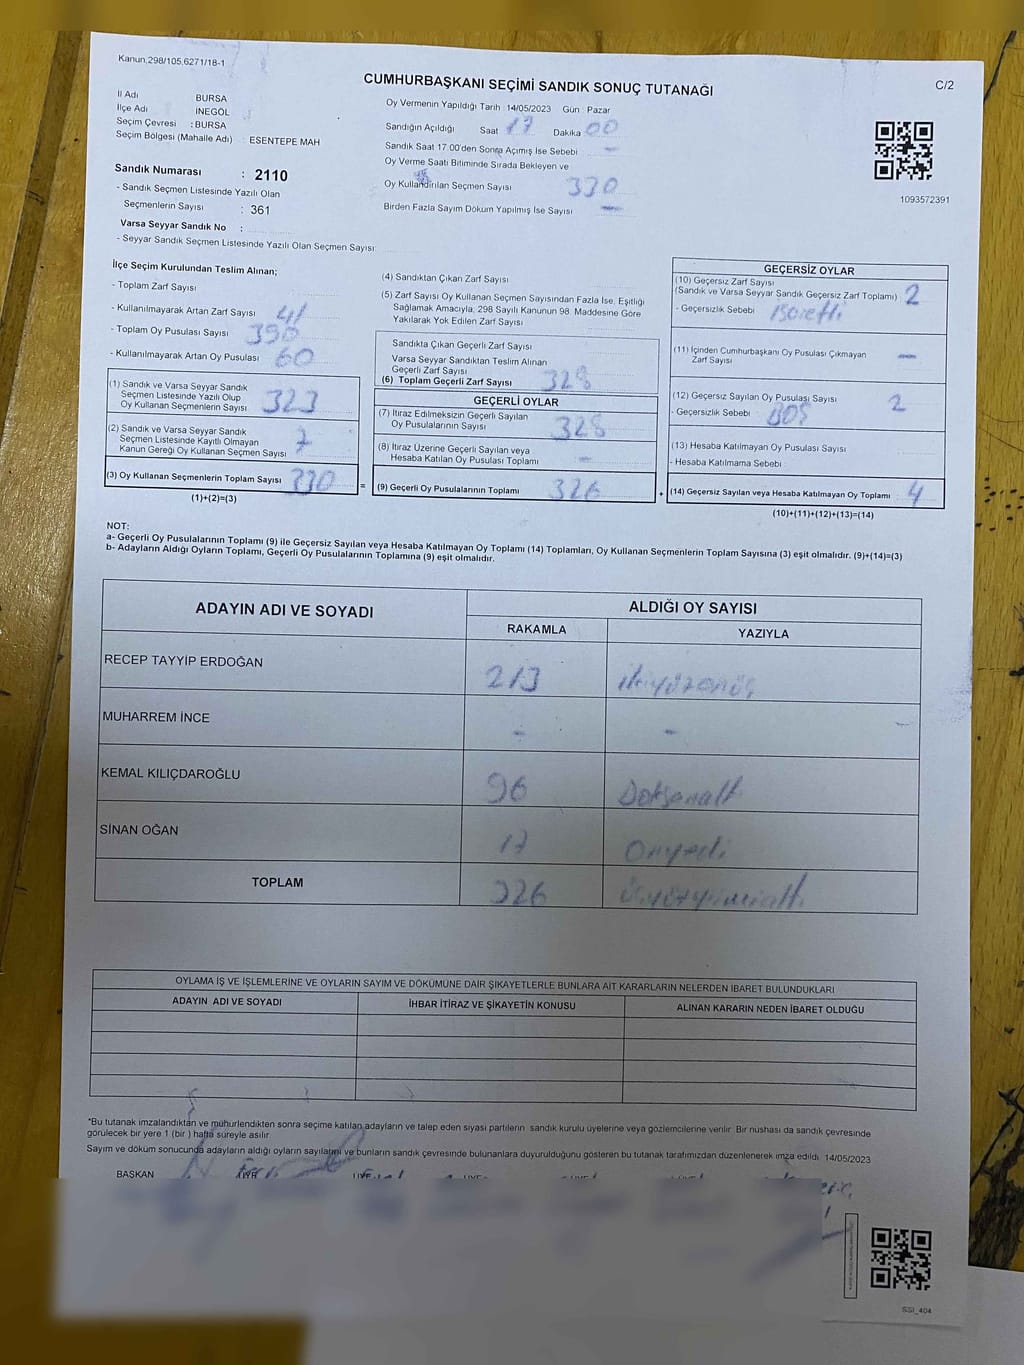 Kanun.298/105,6271/18-1
CUMHURBAŞKANI SEÇİMİ SANDIK SONUÇ TUTANAĞI
C/2
İl Adı BURSA
İlçe Adı İNEGÖL
Seçim Çevresi : BURSA
Seçim Bölgesi (Mahalle Adı) : ESENTEPE MAH
Sandık Numarası : 2110
- Sandık Seçmen Listesinde Yazılı Olan
Seçmenlerin Sayısı : 361
Varsa Seyyar Sandık No :
- Seyyar Sandık Seçmen Listesinde Yazılı Olan Seçmen Sayısı:
Oy Vermenin Yapıldığı Tarih : 14/05/2023 Gün : Pazar
Sandığın Açıldığı Saat 17 Dakika 00
Sandık Saat 17:00'den Sonra Açımış İse Sebebi -
Oy Verme Saati Bitiminde Sırada Bekleyen ve
Oy Kullandırılan Seçmen Sayısı 330
Birden Fazla Sayım Döküm Yapılmış İse Sayısı -
1093572391
İlçe Seçim Kurulundan Teslim Alınan;
- Toplam Zarf Sayısı
- Kullanılmayarak Artan Zarf Sayısı 41
- Toplam Oy Pusulası Sayısı 390
- Kullanılmayarak Artan Oy Pusulası 60
(1) Sandık ve Varsa Seyyar Sandık
Seçmen Listesinde Yazılı Olup
Oy Kullanan Seçmenlerin Sayısı 323
(2) Sandık ve Varsa Seyyar Sandık
Seçmen Listesinde Kayıtlı Olmayan
Kanun Gereği Oy Kullanan Seçmen Sayısı 7
(3) Oy Kullanan Seçmenlerin Toplam Sayısı 330
(1)+(2)=(3)
(4) Sandıktan Çıkan Zarf Sayısı
(5) Zarf Sayısı Oy Kullanan Seçmen Sayısından Fazla İse, Eşitliği
Sağlamak Amacıyla, 298 Sayılı Kanunun 98. Maddesine Göre
Yakılarak Yok Edilen Zarf Sayısı
Sandıkta Çıkan Geçerli Zarf Sayısı
Varsa Seyyar Sandıktan Teslim Alınan
Geçerli Zarf Sayısı
(6) Toplam Geçerli Zarf Sayısı 328
GEÇERLİ OYLAR
(7) İtiraz Edilmeksizin Geçerli Sayılan
Oy Pusulalarının Sayısı 328
(8) İtiraz Üzerine Geçerli Sayılan veya
Hesaba Katılan Oy Pusulası Toplamı -
= (9) Geçerli Oy Pusulalarının Toplamı 326
GEÇERSİZ OYLAR
(10) Geçersiz Zarf Sayısı
(Sandık ve Varsa Seyyar Sandık Geçersiz Zarf Toplamı) 2
- Geçersizlik Sebebi işaretli
(11) İçinden Cumhurbaşkanı Oy Pusulası Çıkmayan
Zarf Sayısı -
(12) Geçersiz Sayılan Oy Pusulası Sayısı 2
- Geçersizlik Sebebi BOŞ
(13) Hesaba Katılmayan Oy Pusulası Sayısı
- Hesaba Katılmama Sebebi
+ (14) Geçersiz Sayılan veya Hesaba Katılmayan Oy Toplamı 4
(10)+(11)+(12)+(13)=(14)
NOT:
a- Geçerli Oy Pusulalarının Toplamı (9) ile Geçersiz Sayılan veya Hesaba Katılmayan Oy Toplamı (14) Toplamları, Oy Kullanan Seçmenlerin Toplam Sayısına (3) eşit olmalıdır. (9)+(14)=(3)
b- Adayların Aldığı Oyların Toplamı, Geçerli Oy Pusulalarının Toplamına (9) eşit olmalıdır.
ADAYIN ADI VE SOYADI ALDIĞI OY SAYISI
RAKAMLA YAZIYLA
RECEP TAYYİP ERDOĞAN 213 ikiyüzonüç
MUHARREM İNCE - -
KEMAL KILIÇDAROĞLU 96 Doksanaltı
SİNAN OĞAN 17 Onyedi
TOPLAM 326 Üçyüzyirmialtı
OYLAMA İŞ VE İŞLEMLERİNE VE OYLARIN SAYIM VE DÖKÜMÜNE DAİR ŞİKAYETLERLE BUNLARA AİT KARARLARIN NELERDEN İBARET BULUNDUKLARI
ADAYIN ADI VE SOYADI İHBAR İTİRAZ VE ŞİKAYETİN KONUSU ALINAN KARARIN NEDEN İBARET OLDUĞU
*Bu tutanak imzalandıktan ve mühürlendikten sonra seçime katılan adayların ve talep eden siyasi partilerin sandık kurulu üyelerine veya gözlemcilerine verilir. Bir nüshası da sandık çevresinde
görülecek bir yere 1 (bir ) hafta süreyle asılır
Sayım ve döküm sonucunda adayların aldığı oyların sayılarını ve bunların sandık çevresinde bulunanlara duyurulduğunu gösteren bu tutanak tarafımızdan düzenlenerek imza edildi. 14/05/2023
BAŞKAN
SSİ_404